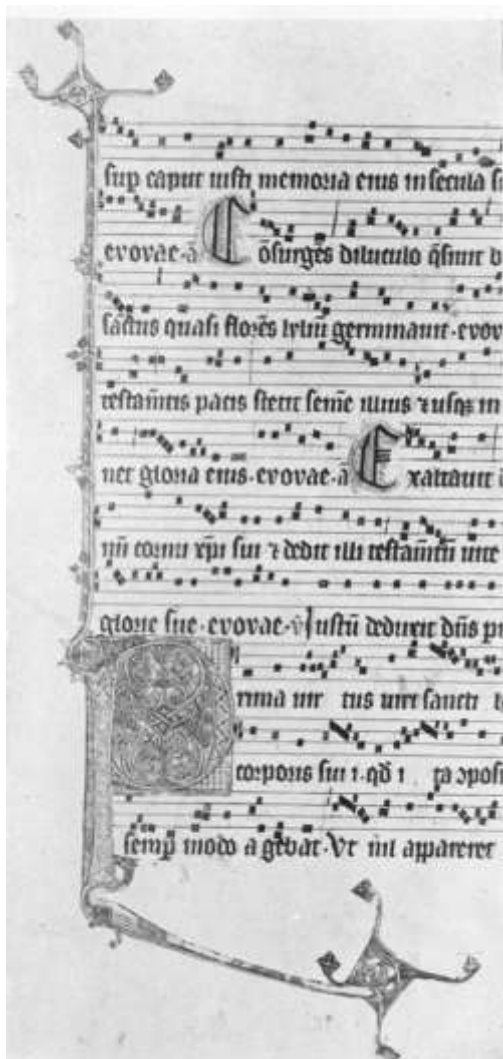 sup caput iusti memoria eius in secula s
evovae · ā Cōsurges diluculo q̄siuit d
sāctus quasi florēs lyliū germinauit · evov
testamētis pacis stetit semē illius ⁊ usq in
net gloria eius · evovae · ā Exaltauit
cornu xp̄i sui ⁊ dedit illi testamētū uite
glorie sue · evovae · v̄ Iustū deduxit dn̄s p
rima uir tus uiri sancti
corporis sui i · qd̄ i ta ɔposi
semp̄ modo a gebat · Ut nil appareret